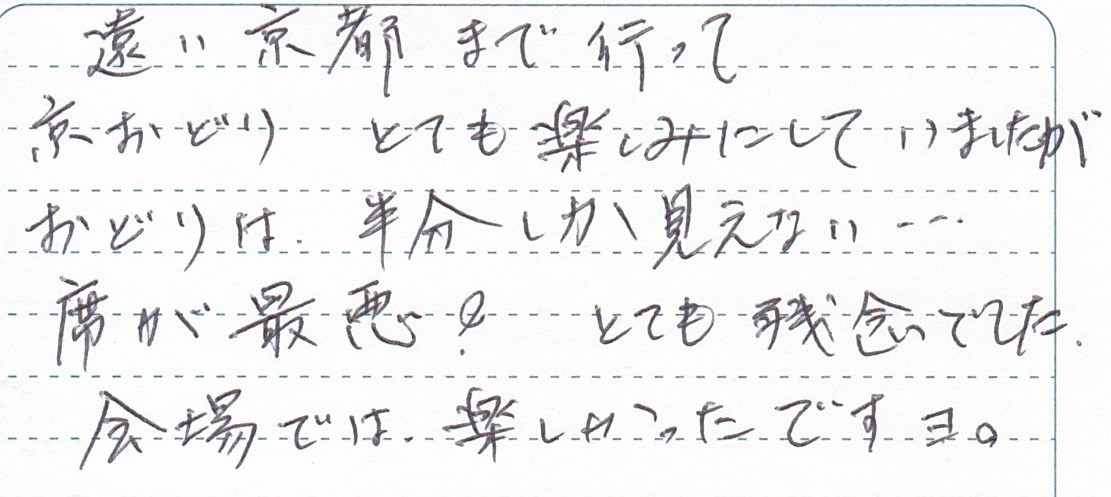 遠い京都まで行って
京おどり とても楽しみにしていましたが
おどりは、半分しか見えない…
席が最悪! とても残念でした、
会場では、楽しかったですヨ。